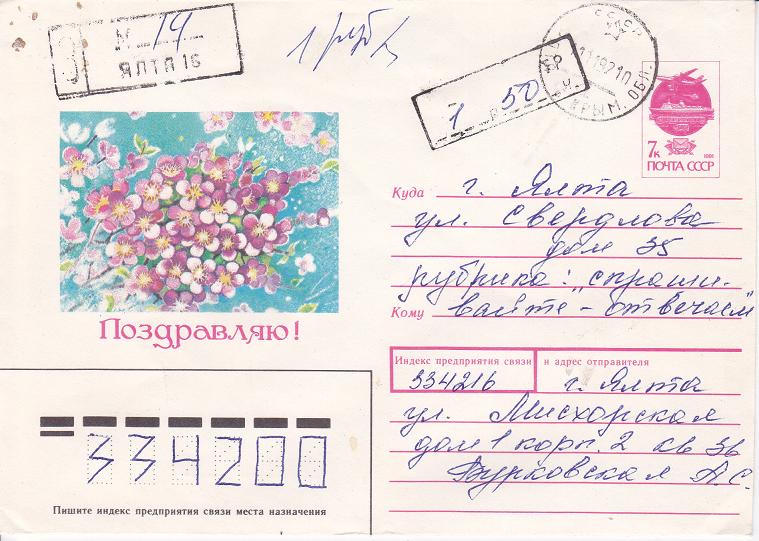 М 19
З ЯЛТА 16
1 руб
1 50
СССР
КРЫМ. ОБЛ.
7к 1991
ПОЧТА СССР
Куда г. Ялта
ул. Свердлова
дом 35
рубрика: „спраши-
Кому вайте - отвечаем"
Поздравляю!
Индекс предприятия связи и адрес отправителя
334216 г. Ялта
ул. Мисхорская
дом 1 корп. 2 кв 36
Бурковская А.С.
334200
Пишите индекс предприятия связи места назначения